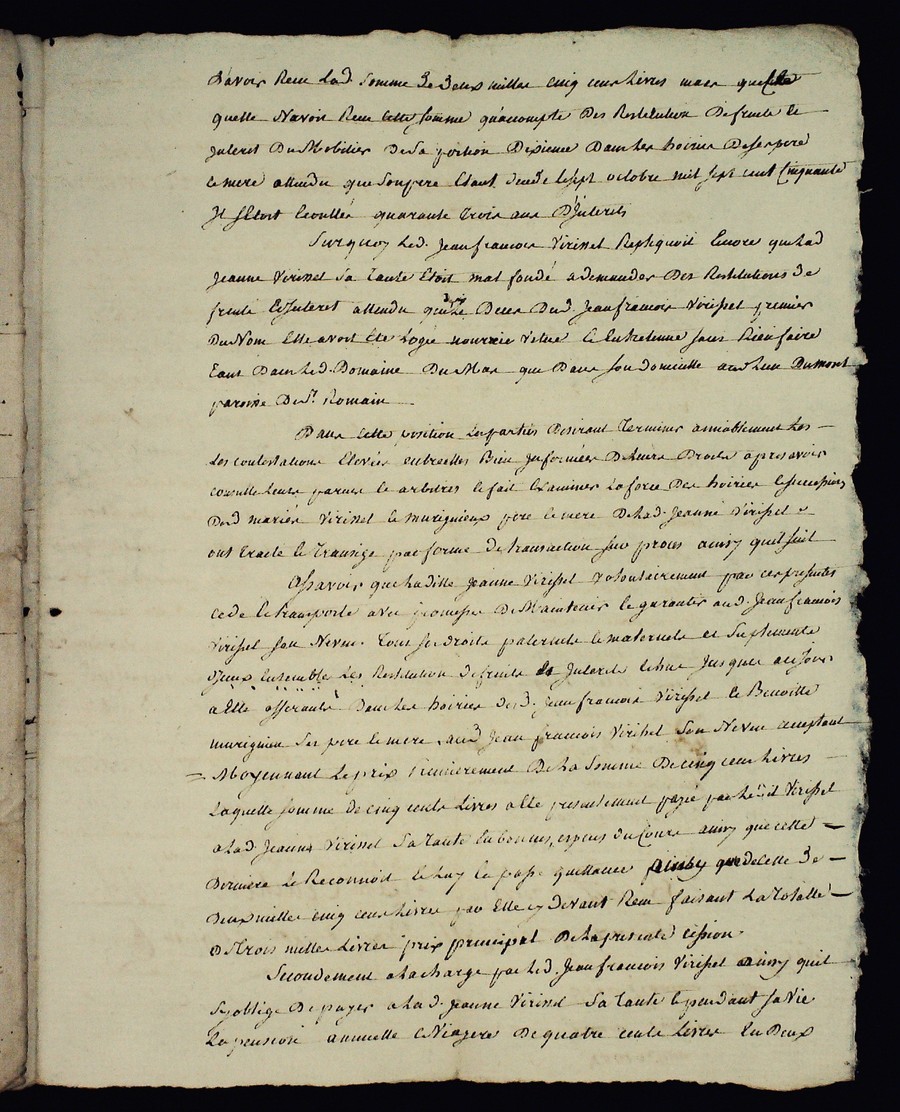 D'avoir Recu Lad. Somme De Deux milles Cinq cens Livres mais
quelle Navoit Recu cette somme qu'acompte Des Restitution De fruits Et
Interet Du Mobilier De Sa portion Dans Les hoiries De Ses pere
Et mere attendu que Son pere Etant Decedé Le Sept octobre mil Sept cent Cinquante
Il S'Etoit Ecoullés quarante Trois ans D'Interets
Surquoy Led. Jean francois Virissel Repliquoit Encore que Lad
Jeanne Virissel Sa Tante Etoit mal fondé a demander Des Restitutions De
fruits Et Interet attendu que Le Deces Dud. Jean francois Virissel premier
Du Nom Elle avoit Eté Logée nourrie Vetue Et Entretenue sans Rien faire
tant Dans Led. Domaine Du Mas que Dans son domicille au Lieu Dumont
paroisse De St. Romain
Dans Cette position Les parties Desirant Terminer amiablement Les
Les contestations Elevées entre elles Bien Informées De Leurs Droits apres avoir
consulté Leurs parens Et arbitres Et fait Examiner La force Des hoiries Et successions
Desd mariés Virissel Et Murignieux pere Et mere De Lad. Jeanne Virissel
ont Traité Et Transigé par forme De transaction sur proces ainsy quil suit
Assavoir que Laditte Jeanne Virissel Volontairement par ces presentes
cede Et transporte avec promesse De Maintenir Et garantir aud. Jean francois
Virissel Son Neveu Tous Ses droits paternels Et maternels Et Suplements
D'jceux Ensemble Les Restitution de fruits Et Interets Echus Jusques a ce Jour
a Elle afferants Dans Les hoiries Desd. Jean francois Virissel Et Benoitte
murignieu Ses pere Et mere, aud Jean francois Virissel Son Neveu acceptant
Moyennant Le prix premierement De La Somme De Cinq cens Livres
Laquelle somme de cinq cents Livres a Eté presentement payée par Led. Virissel
a Lad. Jeanne Virissel Sa Tante En bonnes especes du Cours ainsy que cette
Derniere Le Reconnoit Et Luy En passe quittance ainsy que de celle De
Deux milles Cinq cens Livres par Elle cy Devant Recu faisant La Totalle
De Trois milles Livres prix principal De La presente Cession.
Secondement a La charge par Led. Jean francois Virissel ainsy quil
Sy oblige De payer a Lad. Jeanne Virissel Sa Tante Et pendant sa Vie
La pension annuelle Et Viagere De quatre cents Livres En Deux